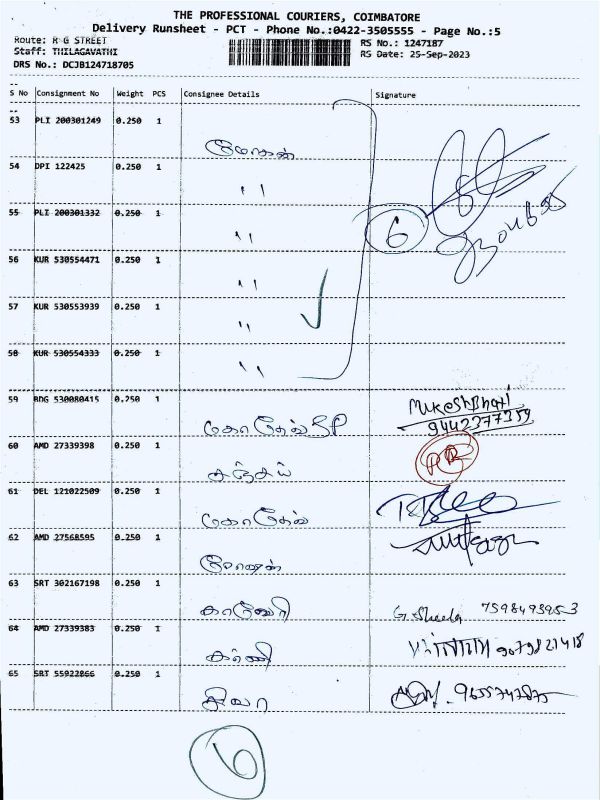 THE PROFESSIONAL COURIERS, COIMBATORE
Delivery Runsheet - PCT - Phone No.:0422-3505555 - Page No.:5
Route: R G STREET RS No.: 1247187
Staff: THILAGAVATHI RS Date: 25-Sep-2023
DRS No.: DCJB124718705
S No Consignment No Weight PCS Consignee Details Signature
53 PLI 200301249 0.250 1
மோகன்
54 DPI 122425 0.250 1
" 
55 PLI 200301332 0.250 1
6
"
56 KUR 530554471 0.250 1
"
57 KUR 530553939 0.250 1
"
58 KUR 530554333 0.250 1
"
59 BDG 530080415 0.250 1
MukeshBhati
9442377359
60 AMD 27339398 0.250 1
61 DEL 121022509 0.250 1
62 AMD 27568595 0.250 1
63 SRT 302167198 0.250 1
G. Sheela
64 AMD 27339383 0.250 1
9079821418
65 SRT 55922866 0.250 1
சிவா 9655747875
6